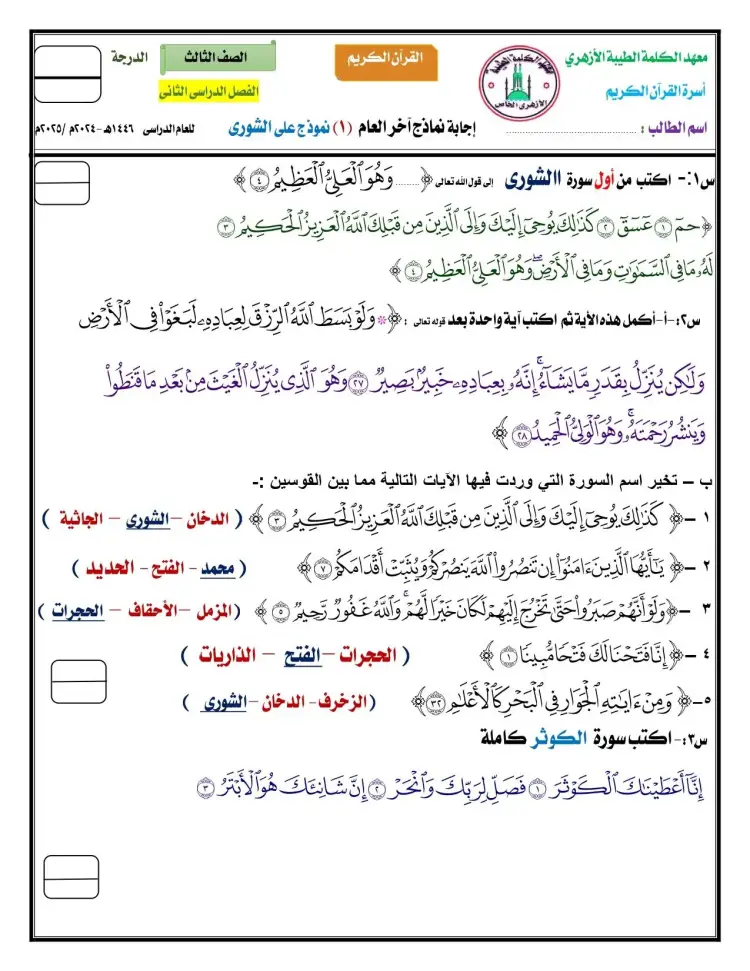 معهد الكلمة الطيبة الأزهري
القرآن الكريم
الصف الثالث
الدرجة
أسرة القرآن الكريم
الفصل الدراسى الثانى
معهد الكلمة الطيبة
الأزهرى الخاص
اسم الطالب : ...........................
إجابة نماذج آخر العام (١) نموذج على الشورى
للعام الدراسى ١٤٤٦هـ -٢٠٢٤م /٢٠٢٥م
س١:- اكتب من أول سورة االشورى إلى قول الله تعالى ﴿ ........ وَهُوَ ٱلْعَلِىُّ ٱلْعَظِيمُ ٤ ﴾
﴿ حمٓ ١ عٓسٓقٓ ٢ كَذَٰلِكَ يُوحِىٓ إِلَيْكَ وَإِلَى ٱلَّذِينَ مِن قَبْلِكَ ٱللَّهُ ٱلْعَزِيزُ ٱلْحَكِيمُ ٣
لَهُۥ مَا فِى ٱلسَّمَٰوَٰتِ وَمَا فِى ٱلْأَرْضِ ۖ وَهُوَ ٱلْعَلِىُّ ٱلْعَظِيمُ ٤ ﴾
س٢:-أ-أكمل هذه الأية ثم اكتب آية واحدة بعد قوله تعالى : ﴿ * وَلَوْ بَسَطَ ٱللَّهُ ٱلرِّزْقَ لِعِبَادِهِۦ لَبَغَوْا۟ فِى ٱلْأَرْضِ
وَلَٰكِن يُنَزِّلُ بِقَدَرٍ مَّا يَشَآءُ ۚ إِنَّهُۥ بِعِبَادِهِۦ خَبِيرٌۢ بَصِيرٌ ٢٧ وَهُوَ ٱلَّذِى يُنَزِّلُ ٱلْغَيْثَ مِنۢ بَعْدِ مَا قَنَطُوا۟
وَيَنشُرُ رَحْمَتَهُۥ ۚ وَهُوَ ٱلْوَلِىُّ ٱلْحَمِيدُ ٢٨ ﴾
ب – تخير اسم السورة التي وردت فيها الآيات التالية مما بين القوسين :-
١ -﴿ كَذَٰلِكَ يُوحِىٓ إِلَيْكَ وَإِلَى ٱلَّذِينَ مِن قَبْلِكَ ٱللَّهُ ٱلْعَزِيزُ ٱلْحَكِيمُ ٣ ﴾ ( الدخان –الشورى – الجاثية )
٢ -﴿ يَٰٓأَيُّهَا ٱلَّذِينَ ءَامَنُوٓا۟ إِن تَنصُرُوا۟ ٱللَّهَ يَنصُرْكُمْ وَيُثَبِّتْ أَقْدَامَكُمْ ٧ ﴾ ( محمد - الفتح - الحديد )
٣ -﴿ وَلَوْ أَنَّهُمْ صَبَرُوا۟ حَتَّىٰ تَخْرُجَ إِلَيْهِمْ لَكَانَ خَيْرًا لَّهُمْ ۚ وَٱللَّهُ غَفُورٌ رَّحِيمٌ ٥ ﴾ (المزمل –الأحقاف – الحجرات )
٤ -﴿ إِنَّا فَتَحْنَا لَكَ فَتْحًا مُّبِينًا ١ ﴾ ( الحجرات –الفتح – الذاريات )
٥-﴿ وَمِنْ ءَايَٰتِهِ ٱلْجَوَارِ فِى ٱلْبَحْرِ كَٱلْأَعْلَٰمِ ٣٢ ﴾ (الزخرف- الدخان –الشورى )
س٣:-اكتب سورة الكوثر كاملة
إِنَّآ أَعْطَيْنَٰكَ ٱلْكَوْثَرَ ١ فَصَلِّ لِرَبِّكَ وَٱنْحَرْ ٢ إِنَّ شَانِئَكَ هُوَ ٱلْأَبْتَرُ ٣